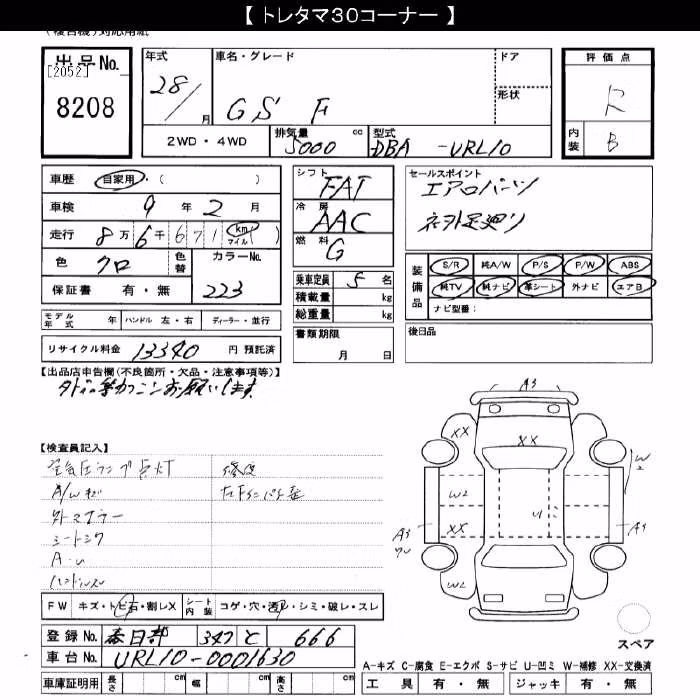 【 トレタマ30コーナー 】
(複合機)対応用紙
出品No.
[2052]
8208
年式 28/ 月
車名・グレード GS F
ドア
形状
2WD・4WD
排気量 5000 cc
型式 DBA -URL10
評価点 R
内装 B
車歴 自家用・( )
車検 9年 2月
走行 8万6千671 (km マイル)
色 クロ 色替 カラーNo. 223
保証書 有・無
シフト FAT
冷房 AAC
燃料 G
乗車定員 5名
積載量 kg
総重量 kg
書類期限 月 日
セールスポイント
エアロパーツ
装備品
S/R 純A/W P/S P/W ABS
純TV 純ナビ 革シート 外ナビ エアB
ナビ型番:
後日品
モデル年式 年 ハンドル 左・右 ディーラー・並行
リサイクル料金 13340 円 預託済
【出品店申告欄(不良箇所・欠品・注意事項等)】
【検査員記入】
空気圧ランプ点灯
A/Wキズ
外マフラー
修復
FW キズ・トビ石・割レX シート内装 コゲ・穴・汚レ・シミ・破レ・スレ
登録No. 春日部 347 と 666
車台No. URL10-0001630
車庫証明用 長さ cm 幅 cm 高さ cm
A3
XX
XX
W2
W2
U
XX
A3
A3
W2
スペア
A-キズ C-腐食 E-エクボ S-サビ U-凹ミ W-補修 XX-交換済
工具 有・無 ジャッキ 有・無